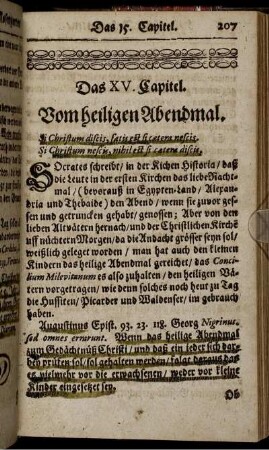 Das 15. Capitel. 207
Das XV. Capitel.
Vom heiligen Abendmal.
Si Christum discis, satis est si cætera nescis,
Si Christum nescis, nihil est si cætera discis.
SOcrates schreibt / in der Kichen Historia / daß
die Leute in der ersten Kirchen das liebe Nacht-
mal / (bevorauß in Egypten-Land / Alexan-
dria und Thebaide) den Abend / wenn sie zuvor ges-
sen und getruncken gehabt / genossen; Aber von den
lieben Altvätern hernach / und der Christlichen Kirchē
uff nüchtern Morgen / da die Andacht grösser seyn sol /
weißlich geleget worden / man hat auch den kleinen
Kindern das heilige Abendmal gereichet / das Conci-
lium Milevitanum es also zuhalten / den heiligen Vä-
tern vorgetragen / wie denn solches noch heut zu Tag
die Hussiten / Picarder und Waldenser / im gebrauch
haben.
Augustinus Epist. 93. 23. 118. Georg Nigrinus.
sed omnes errarunt. Wenn das heilige Abendmal
zum Gedächtnüß Christi / und daß ein jeder sich dar-
bey prüfen sol / sol gehalten werden / folgt daraus das
es vielmehr vor die erwachsenen / weder vor kleine
Kinder eingesetzet sey.
Ob